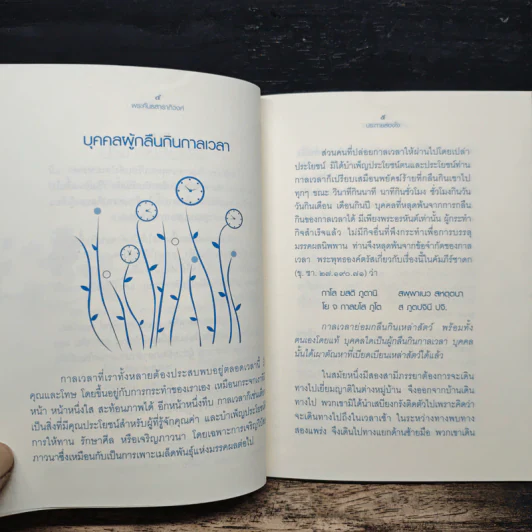 พระคันธสาราภิวงศ์
บุคคลผู้กลืนกินกาลเวลา
กาลเวลาที่เราทั้งหลายต้องประสบพบอยู่ตลอดเวลานี้
คุณและโทษ โดยขึ้นอยู่กับการกระทำของเราเอง เหมือนกระจกเงา
หน้า หน้าหนึ่งใส สะท้อนภาพได้ อีกหน้าหนึ่งทึบ กาลเวลาก็เช่น
เป็นสิ่งที่มีคุณประโยชน์สำหรับผู้ที่รู้จักคุณค่า และบำเพ็ญประโยชน์
การให้ทาน รักษาศีล หรือเจริญภาวนา โดยเฉพาะการเจริญวิปัส
ภาวนาซึ่งเหมือนกับเป็นการเพาะเมล็ดพันธุ์แห่งมรรคผลต่อไป
ส่วนคนที่ปล่อยกาลเวลาให้ผ่านไปโดยเปล่า
ประโยชน์ มิได้บำเพ็ญประโยชน์ตนและประโยชน์ท่าน
กาลเวลาก็เปรียบเสมือนพยัคฆ์ร้ายที่กลืนกินเขาไป
ทุกๆ ขณะ วินาทีกินนาที นาทีกินชั่วโมง ชั่วโมงกินวัน
วันกินเดือน เดือนกินปี บุคคลที่หลุดพ้นจากการกลืน
กินของกาลเวลาได้ มีเพียงพระอรหันต์เท่านั้น ผู้กระทำ
กิจสำเร็จแล้ว ไม่มีกิจอื่นที่พึงกระทำเพื่อการบรรลุ
มรรคผลนิพพาน ท่านจึงหลุดพ้นจากข้อจำกัดของกาล
เวลา พระพุทธองค์ตรัสเกี่ยวกับเรื่องนี้ในคัมภีร์ชาดก
(ขุ. ชา. ๒๗.๑๙๐.๗๑) ว่า
กาโล ฆสติ ภูตานิ สพฺพาเนว สหตฺตนา
โย จ กาลฆโส ภูโต ส ภูตปจนึ ปจิ.
กาลเวลาย่อมกลืนกินเหล่าสัตว์ พร้อมทั้ง
ตนเองโดยแท้ บุคคลใดเป็นผู้กลืนกินกาลเวลา บุคคล
นั้นได้เผาตัณหาที่เบียดเบียนเหล่าสัตว์ได้แล้ว
ในสมัยหนึ่งมีสองสามีภรรยาต้องการจะเดิน
ทางไปเยี่ยมญาติในต่างหมู่บ้าน จึงออกจากบ้านเดิน
ทางไป พวกเขามิได้นำเสบียงกรังติดตัวไปเพราะคิดว่า
จะเดินทางไปถึงในเวลาเช้า ในระหว่างทางพบทาง
สองแพร่ง จึงเดินไปทางแยกด้านซ้ายมือ พวกเขาเดิน